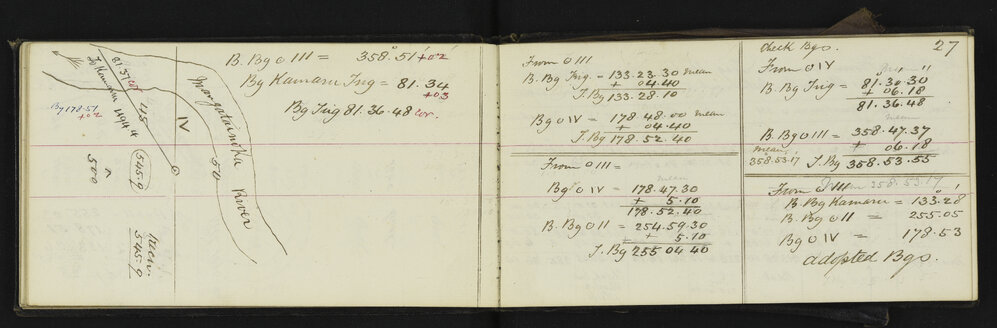 B. Bg O III = 358° 51' +02'
By Kamaru Trig = 81.34
+03
Bg Trig 81.36.48 cor.
81.37 cor
To Kamaru 494.4
Bg 178.51
+02
45
IV
50
545.9
500
Mean
545.9
Mangatainoka River
From O III
B. Bg Trig = 133.23.30 mean
+ 04.40
T. Bg 133.28.10
Bg O IV = 178 48.00 mean
+ 04.40
T. Bg 178.52.40
From O III =
mean
Bg O IV = 178.47.30
+ 5.10
178.52.40
B. Bg O II = 254.59.30
+ 5.10
T. Bg 255 04 40
27
Check Bgs.
From O IV
B. Bg Trig = 81.30.30
+ 06.18
81.36.48
mean
B. Bg O III = 358.47.37
+ 06.18
mean
358.53.17 T. Bg 358.53.55
From O III 358.53.17
B. Bg Kamaru = 133.28
B. Bg O II = 255.05
Bg O IV = 178.53
adopted Bgs.